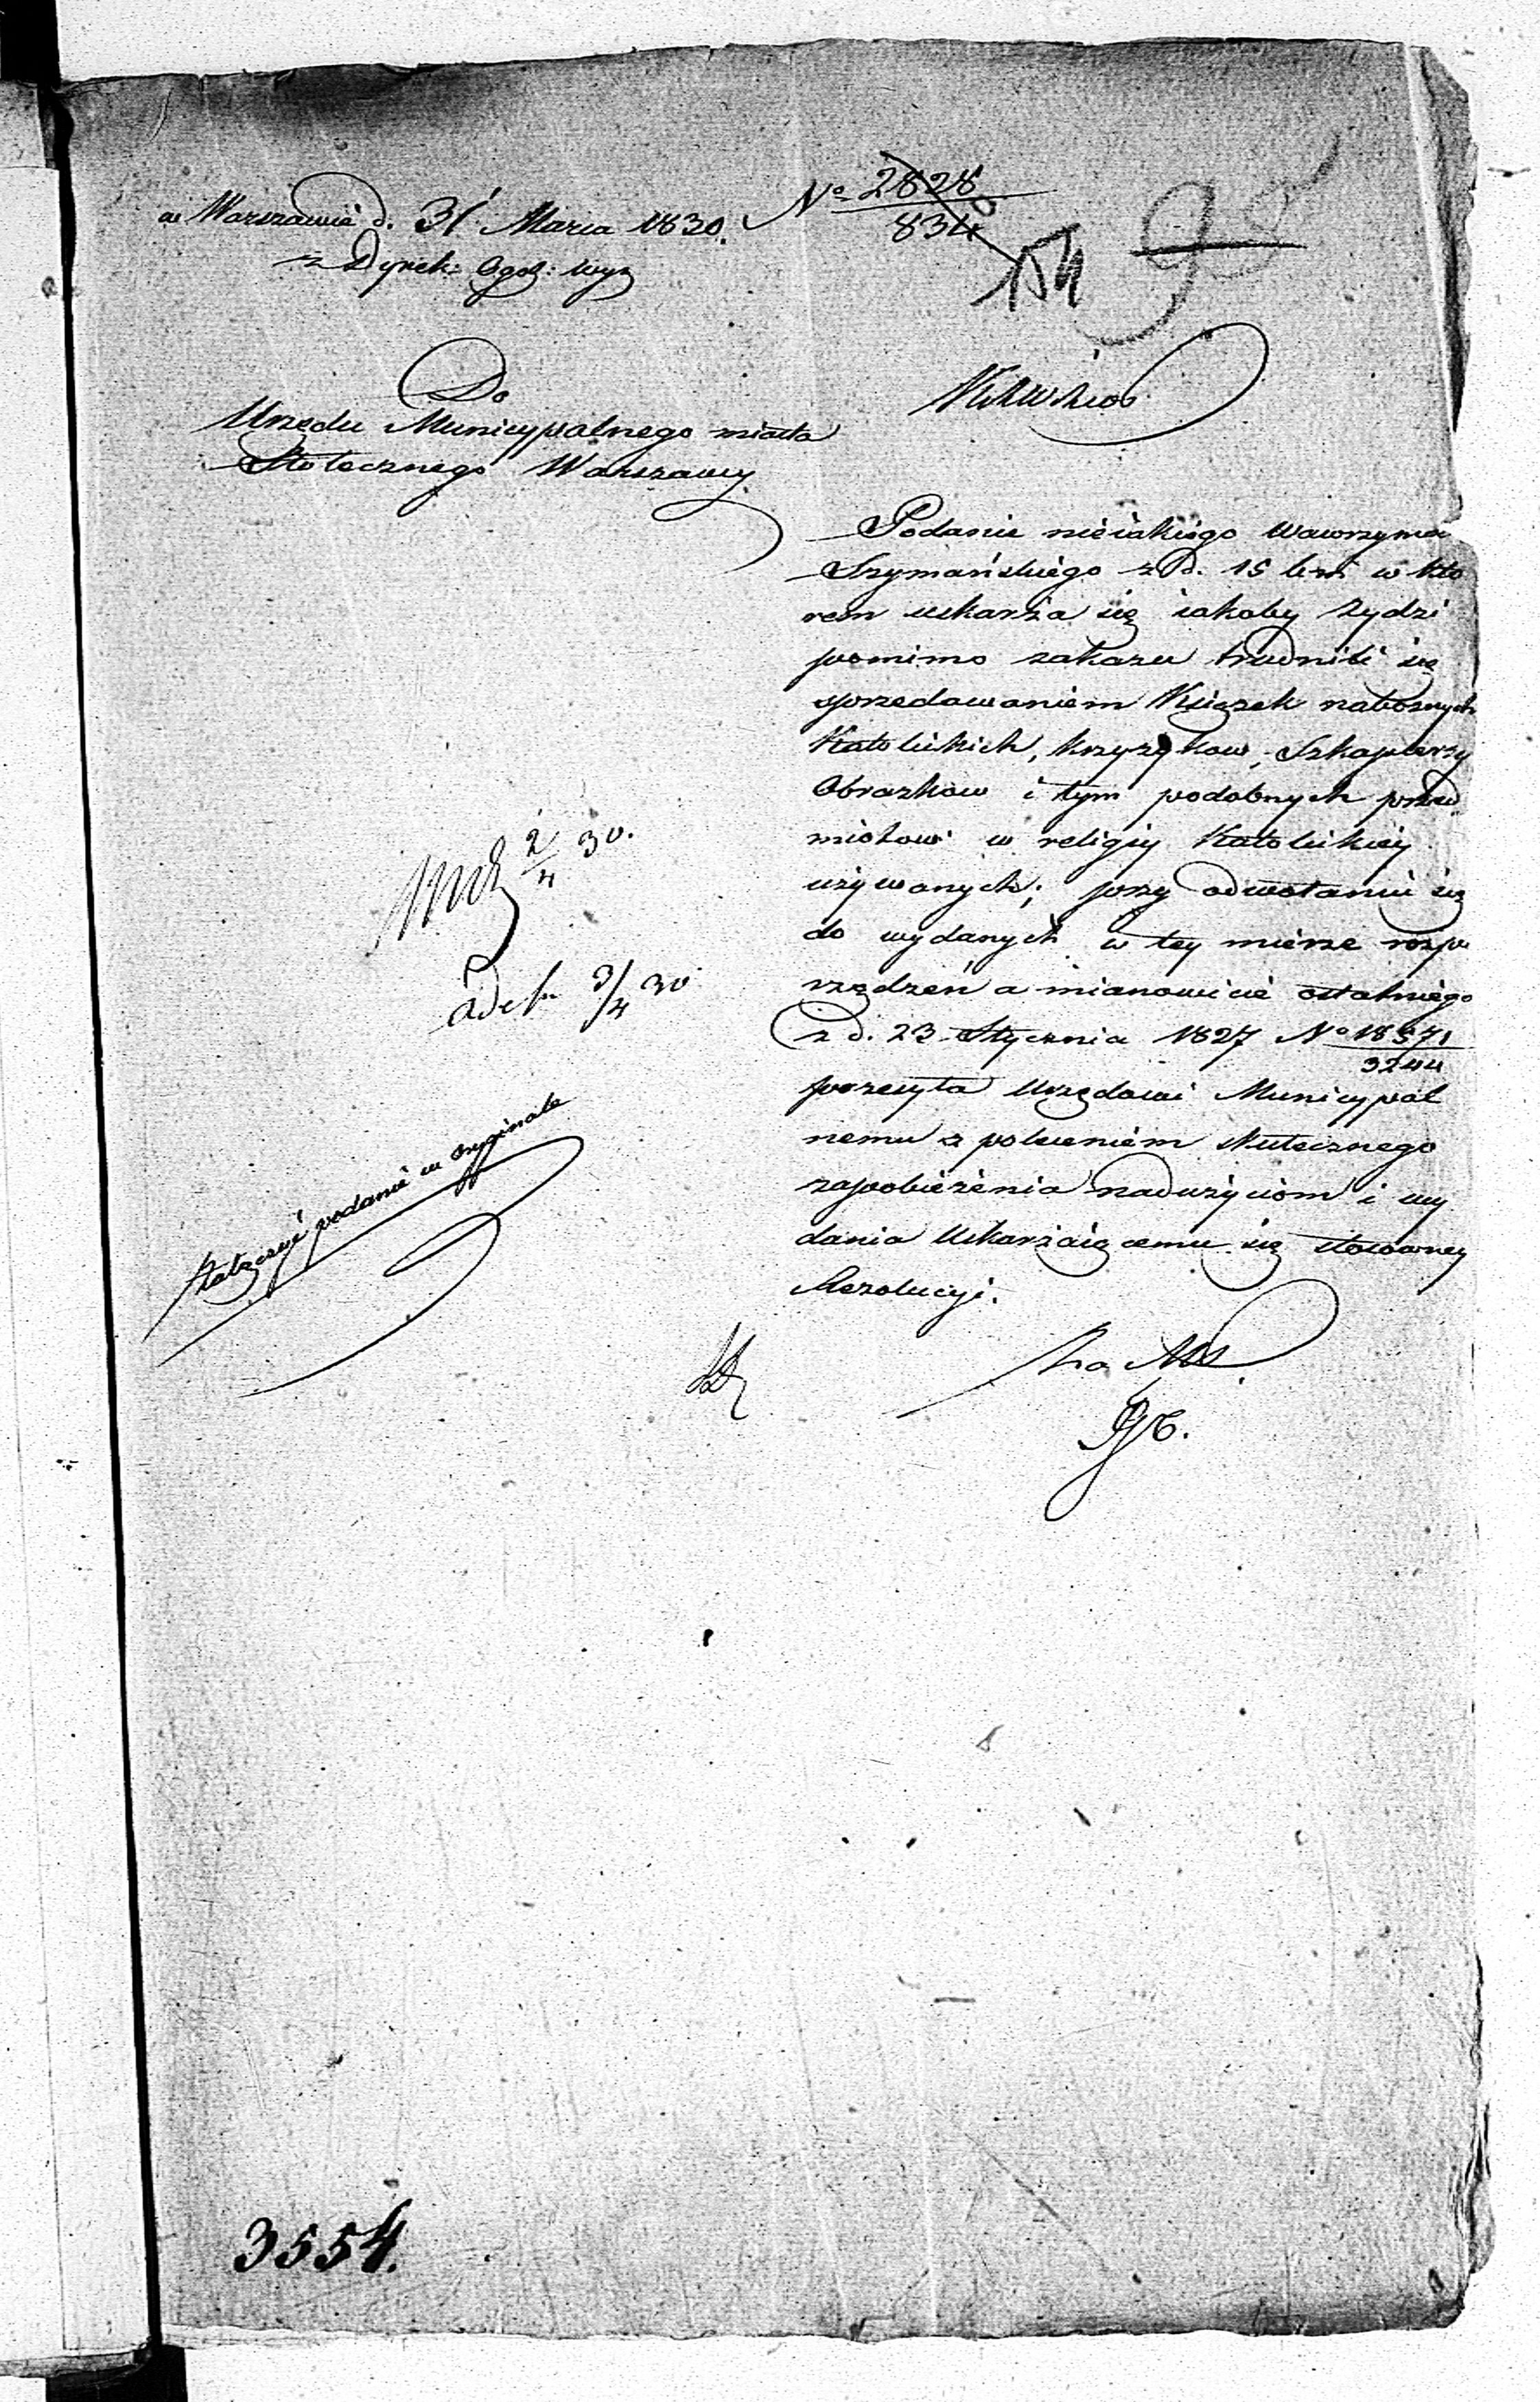 w Warszawie d. 31 Marca 1830.
z Dyrek: Ogol: Wyz
No 2828
834
154
Do
Urzędu Municypalnego miasta
Stołecznego Warszawy
Podanie nieiakiego Wawrzynca
Szymańskiego z d. 15 b. m. w któ
rem uskarża się iakoby Żydzi
pomimo zakazu trudnili się
sprzedawaniem Książek nabożnych
Katolickich, krzyżyków, Szkaplerzy
Obrazkow i tym podobnych przed
miotow w religiy Katolickiey
używanych; przy odwołaniu się
do wydanych w tey mierze rozpo
rządzeń a mianowicie ostatniego
z d. 23 Stycznia 1827 No 18571
3244
przesyła Urzędowi Municypal
nemu z poleceniem skutecznego
zapobieżenia nadużyciom i wy
dania Uskarżaiącemu się stosowney
Rezolucyi.
2/4 30.
3/4 30
załączyć podanie w oryginale
3554.